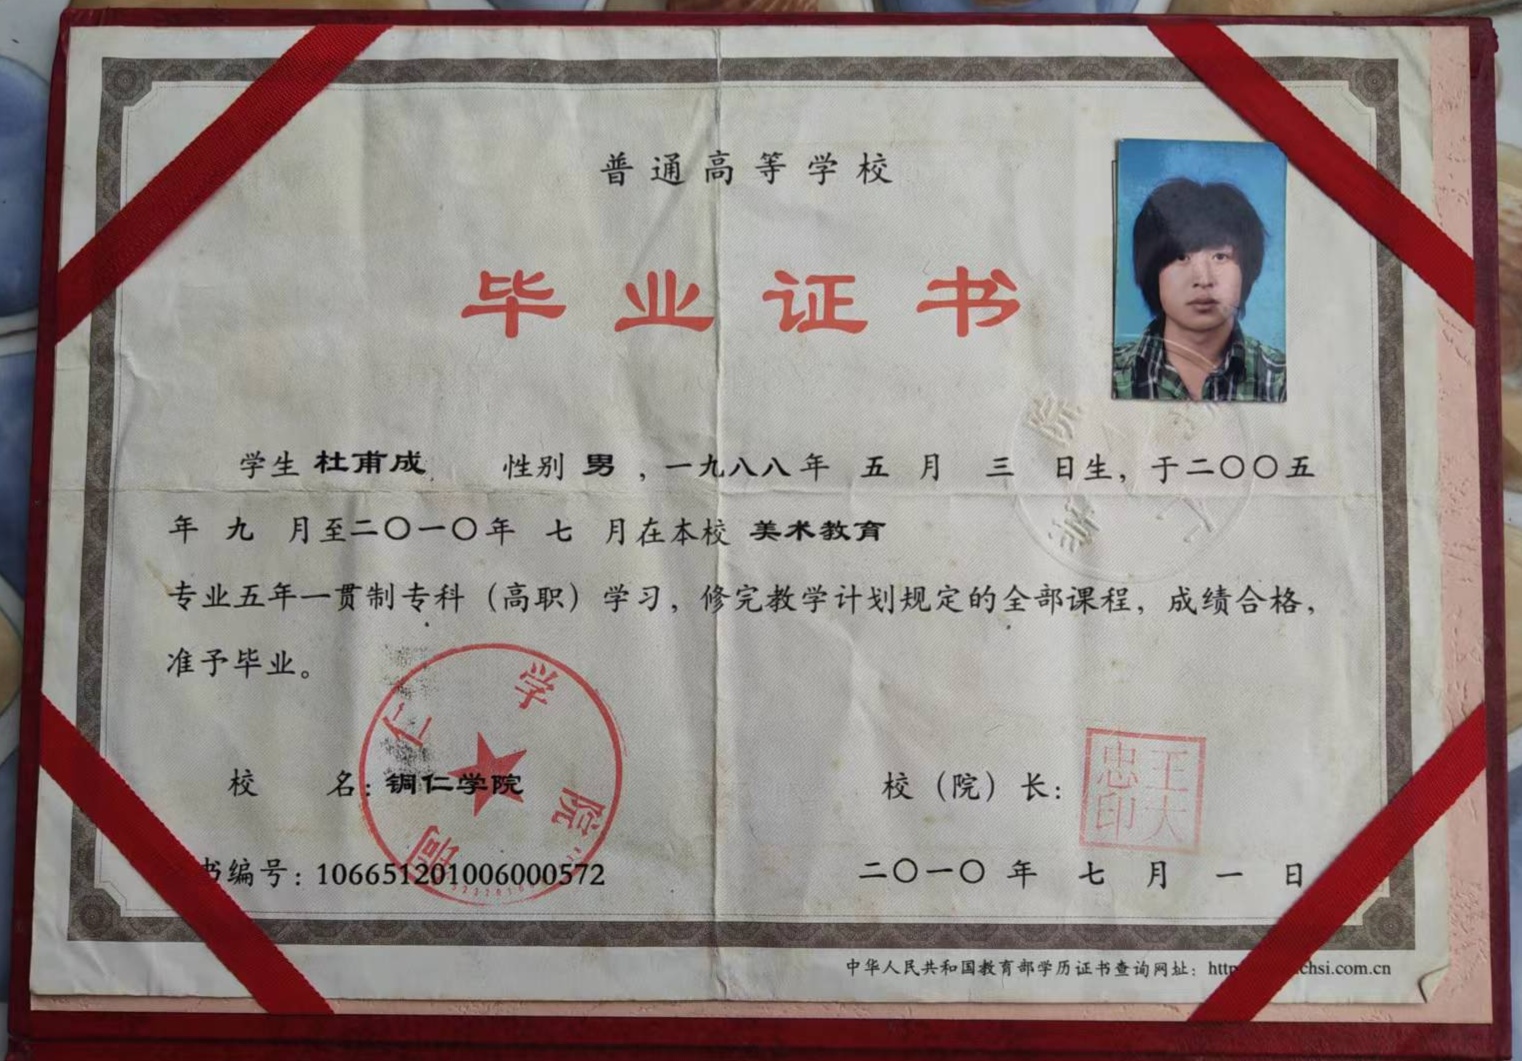 普通高等学校
毕业证书
学生 杜甫成 性别 男 ，一九八八年 五 月 三 日生，于二〇〇五
年 九 月至二〇一〇年 七 月在本校 美术教育
专业五年一贯制专科（高职）学习，修完教学计划规定的全部课程，成绩合格，
准予毕业。
校 名：铜仁学院
校（院）长：
王大忠印
书编号：106651201006000572
二〇一〇年 七 月 一 日
中华人民共和国教育部学历证书查询网址：http chsi.com.cn
铜仁学院